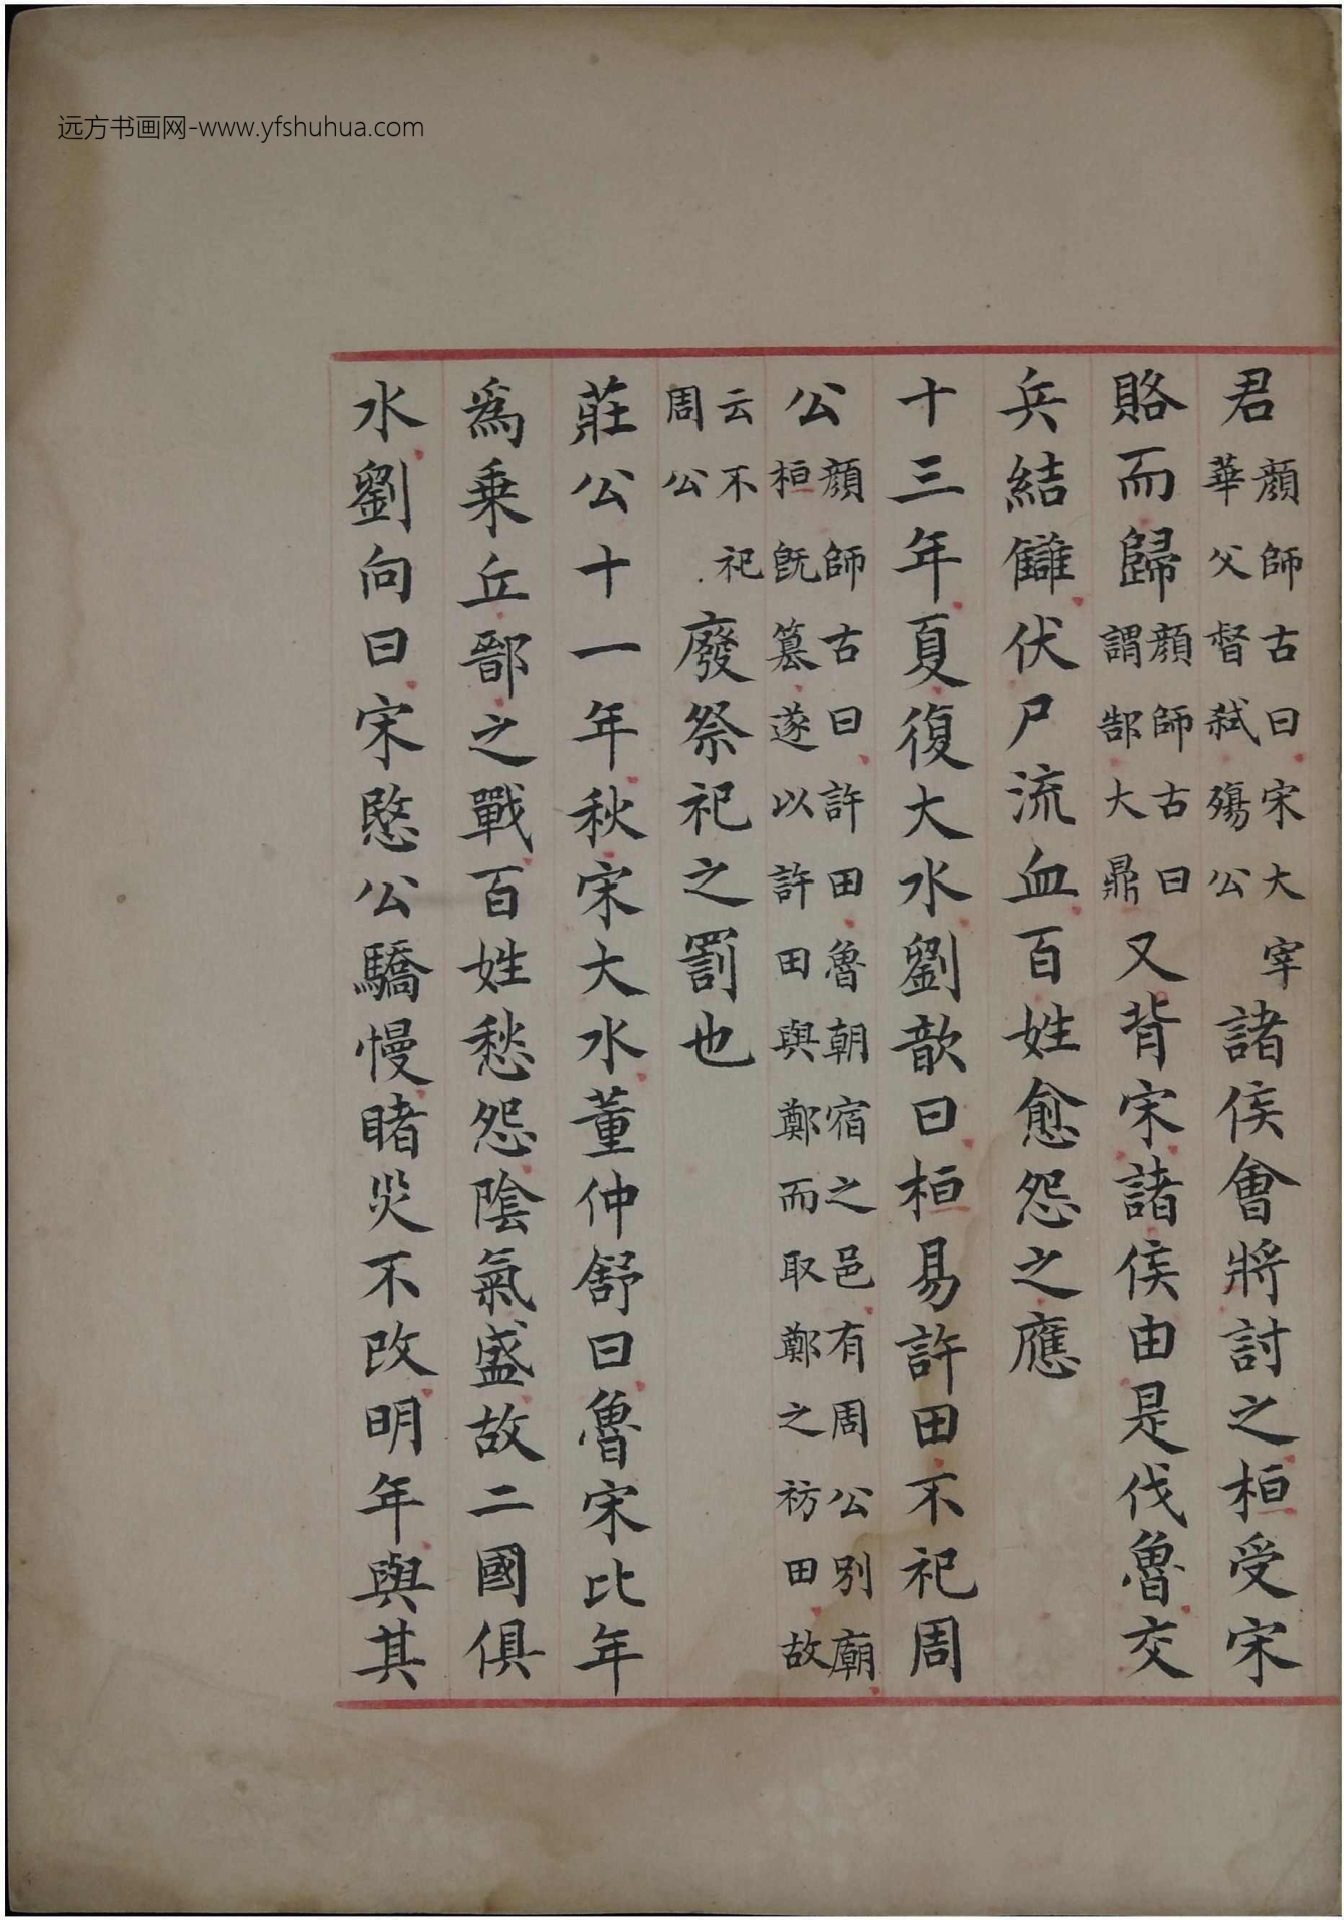 远方书画网-www.yfshuhua.com
君顔師古曰宋大宰華父督弑殤公諸侯會將討之桓受宋
賂而歸顔師古曰謂郜大鼎又背宋諸侯由是伐魯交
兵結讎伏尸流血百姓愈怨之應
十三年夏復大水劉歆曰桓易許田不祀周
公顔師古曰許田魯朝宿之邑有周公别廟桓既篡遂以許田與鄭而取鄭之祊田故
云不祀周公廢祭祀之罰也
莊公十一年秋宋大水董仲舒曰魯宋比年
爲乗丘鄑之戰百姓愁怨陰氣盛故二國俱
水劉向曰宋愍公驕慢睹災不改明年與其